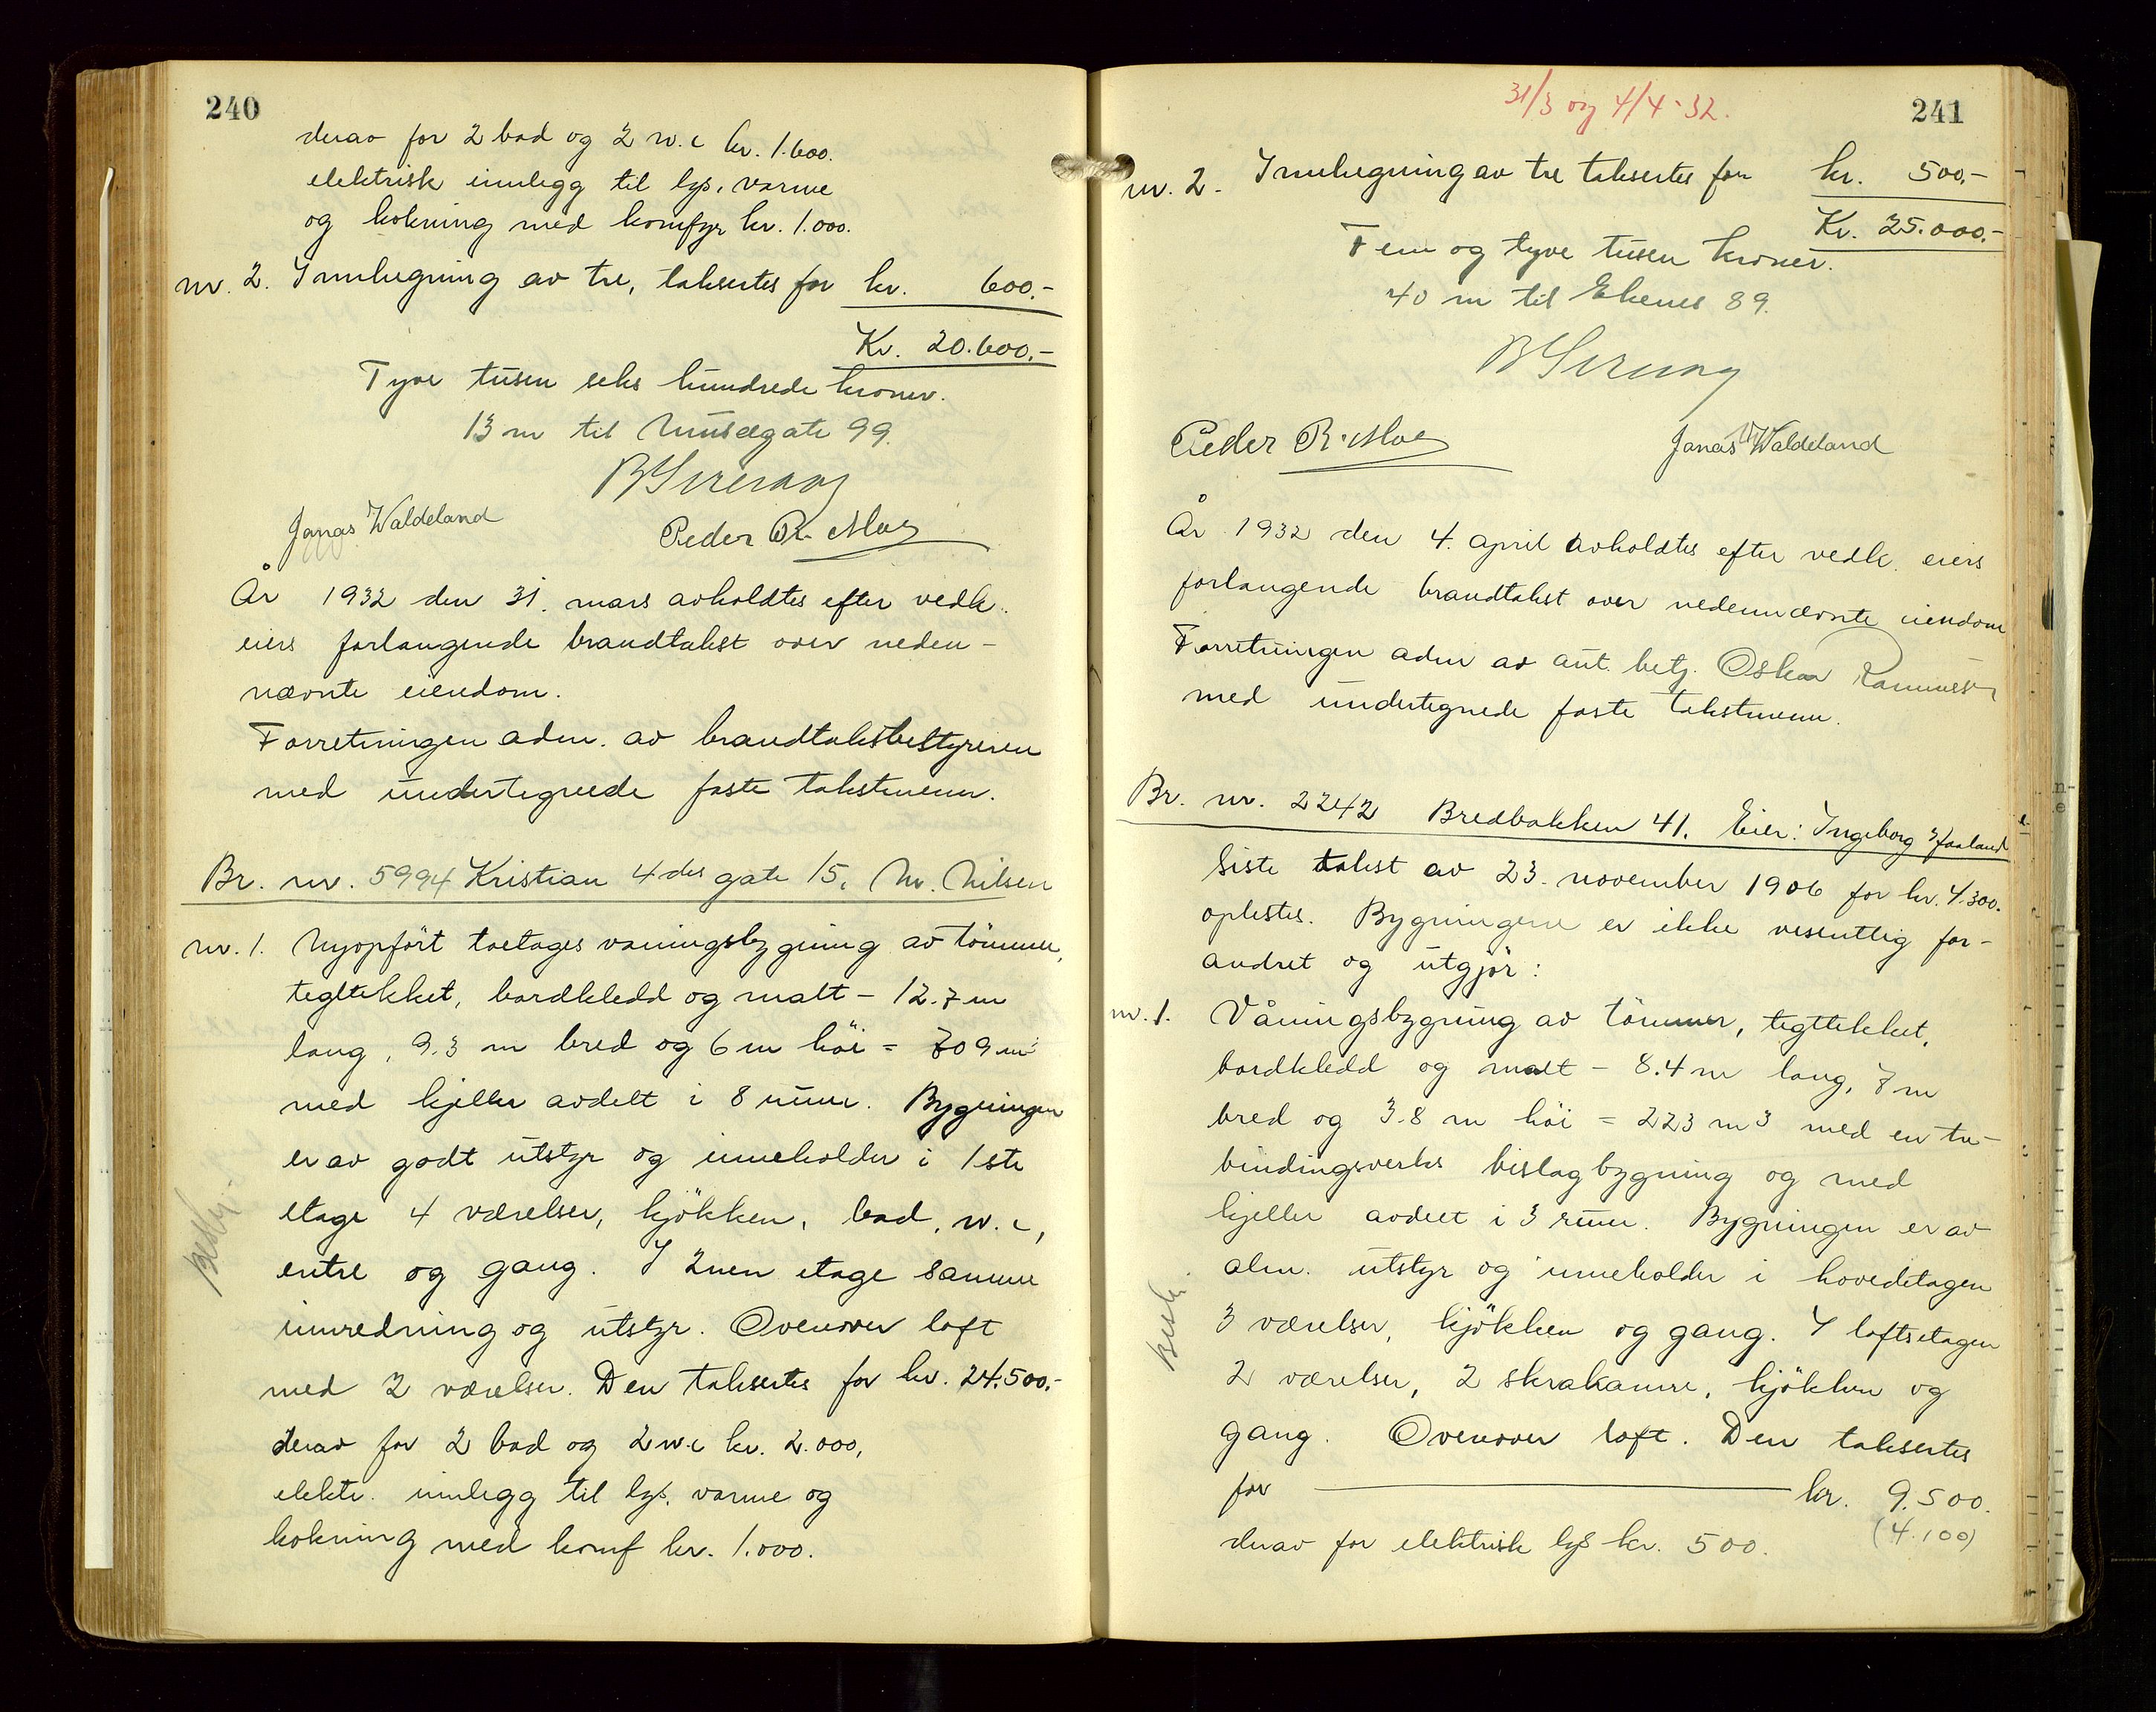 240
derav for 2 bad og 2 w.c kr. 1.600.
elektrisk innlegg til lys, varme
og kokning med komfyr kr. 1.000.
nr. 2. Innhegning av tre, taksertes for kr. 600.-
Kr. 20.600.-
Tyve tusen seks hundrede kroner.
13 m til Musegate 99.
Jonas Waldeland
Peder R. Moe
År 1932 den 31. mars avholdtes efter vedk.
eiers forlangende brandtakst over neden-
nævnte eiendom.
Forretningen adm. av brandtakstbestyreren
med undertegnede faste takstmenn.
Br. nr. 5994 Kristian 4des gate 15, M. Nilsen
nr. 1. Nyopført toetages vaningsbygning av tømmer,
tegltekket, bordkledd og malt - 12.7 m
lang, 9.3 m bred og 6 m høi = 709 m³
med kjeller avdelt i 8 rum. Bygningen
er av godt utstyr og inneholder i 1ste
etage 4 værelser, kjøkken, bad, w.c,
entre og gang. I 2nen etage samme
innredning og utstyr. Ovenover loft
med 2 værelser. Den taksertes for kr. 24.500.-
derav for 2 bad og 2 w.c kr. 2.000,
elektr. innlegg til lys, varme og
kokning med komf kr. 1.000.
31/3 og 4/4-32.
241
nr. 2. Innhegning av tre taksertes for kr. 500.-
Kr. 25.000.-
Fem og tyve tusen kroner.
40 m til Ekenes 89.
Peder R. Moe
Jonas Waldeland
År 1932 den 4. april avholdtes efter vedk. eiers
forlangende brandtakst over nedennævnte eiendom
Forretningen adm av aut. betj. Oskar Rasmussen
med undertegnede faste takstmenn.
Br. nr. 2242 Bredbakken 41. Eier: Ingeborg
Siste takst av 23. november 1906 for kr. 4.300.
oplestes. Bygningene er ikke vesentlig for-
andret og utgjør:
nr. 1. Våningsbygning av tømmer, tegltekket,
bordkledd og malt - 8.4 m lang, 7 m
bred og 3.8 m høi = 223 m3 med en tre-
bindingsverks bislagbygning og med
kjeller avdelt i 3 rum. Bygningen er av
alm. utstyr og inneholder i hovedetagen
3 værelser, kjøkken og gang. I loftsetagen
2 værelser, 2 skrakamre, kjøkken og
gang. Ovenover loft. Den taksertes
for kr. 9.500.
(4.100)
derav for elektrisk lys kr. 500.